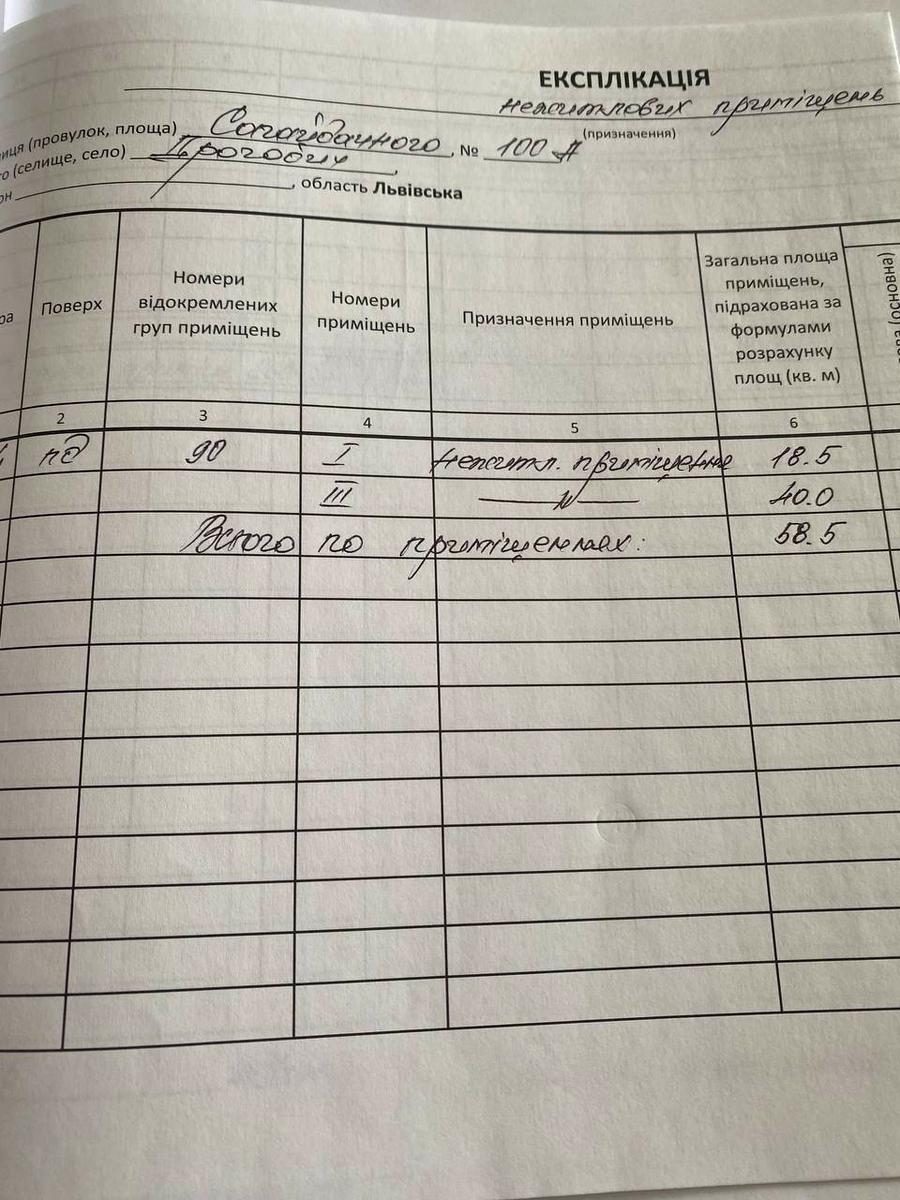 ЕКСПЛІКАЦІЯ
нежитлових приміщень
(призначення)
иця (провулок, площа) Сагайдачного, № 100 А
о (селище, село) Дрогобич,
он , область Львівська
ра
Поверх
Номери
відокремлених
груп приміщень
Номери
приміщень
Призначення приміщень
Загальна площа
приміщень,
підрахована за
формулами
розрахунку
площ (кв. м)
(основна)
2 3 4 5 6
пд 90 I нежитл. приміщення 18.5
III —〃— 40.0
Всього по приміщеннях: 58.5